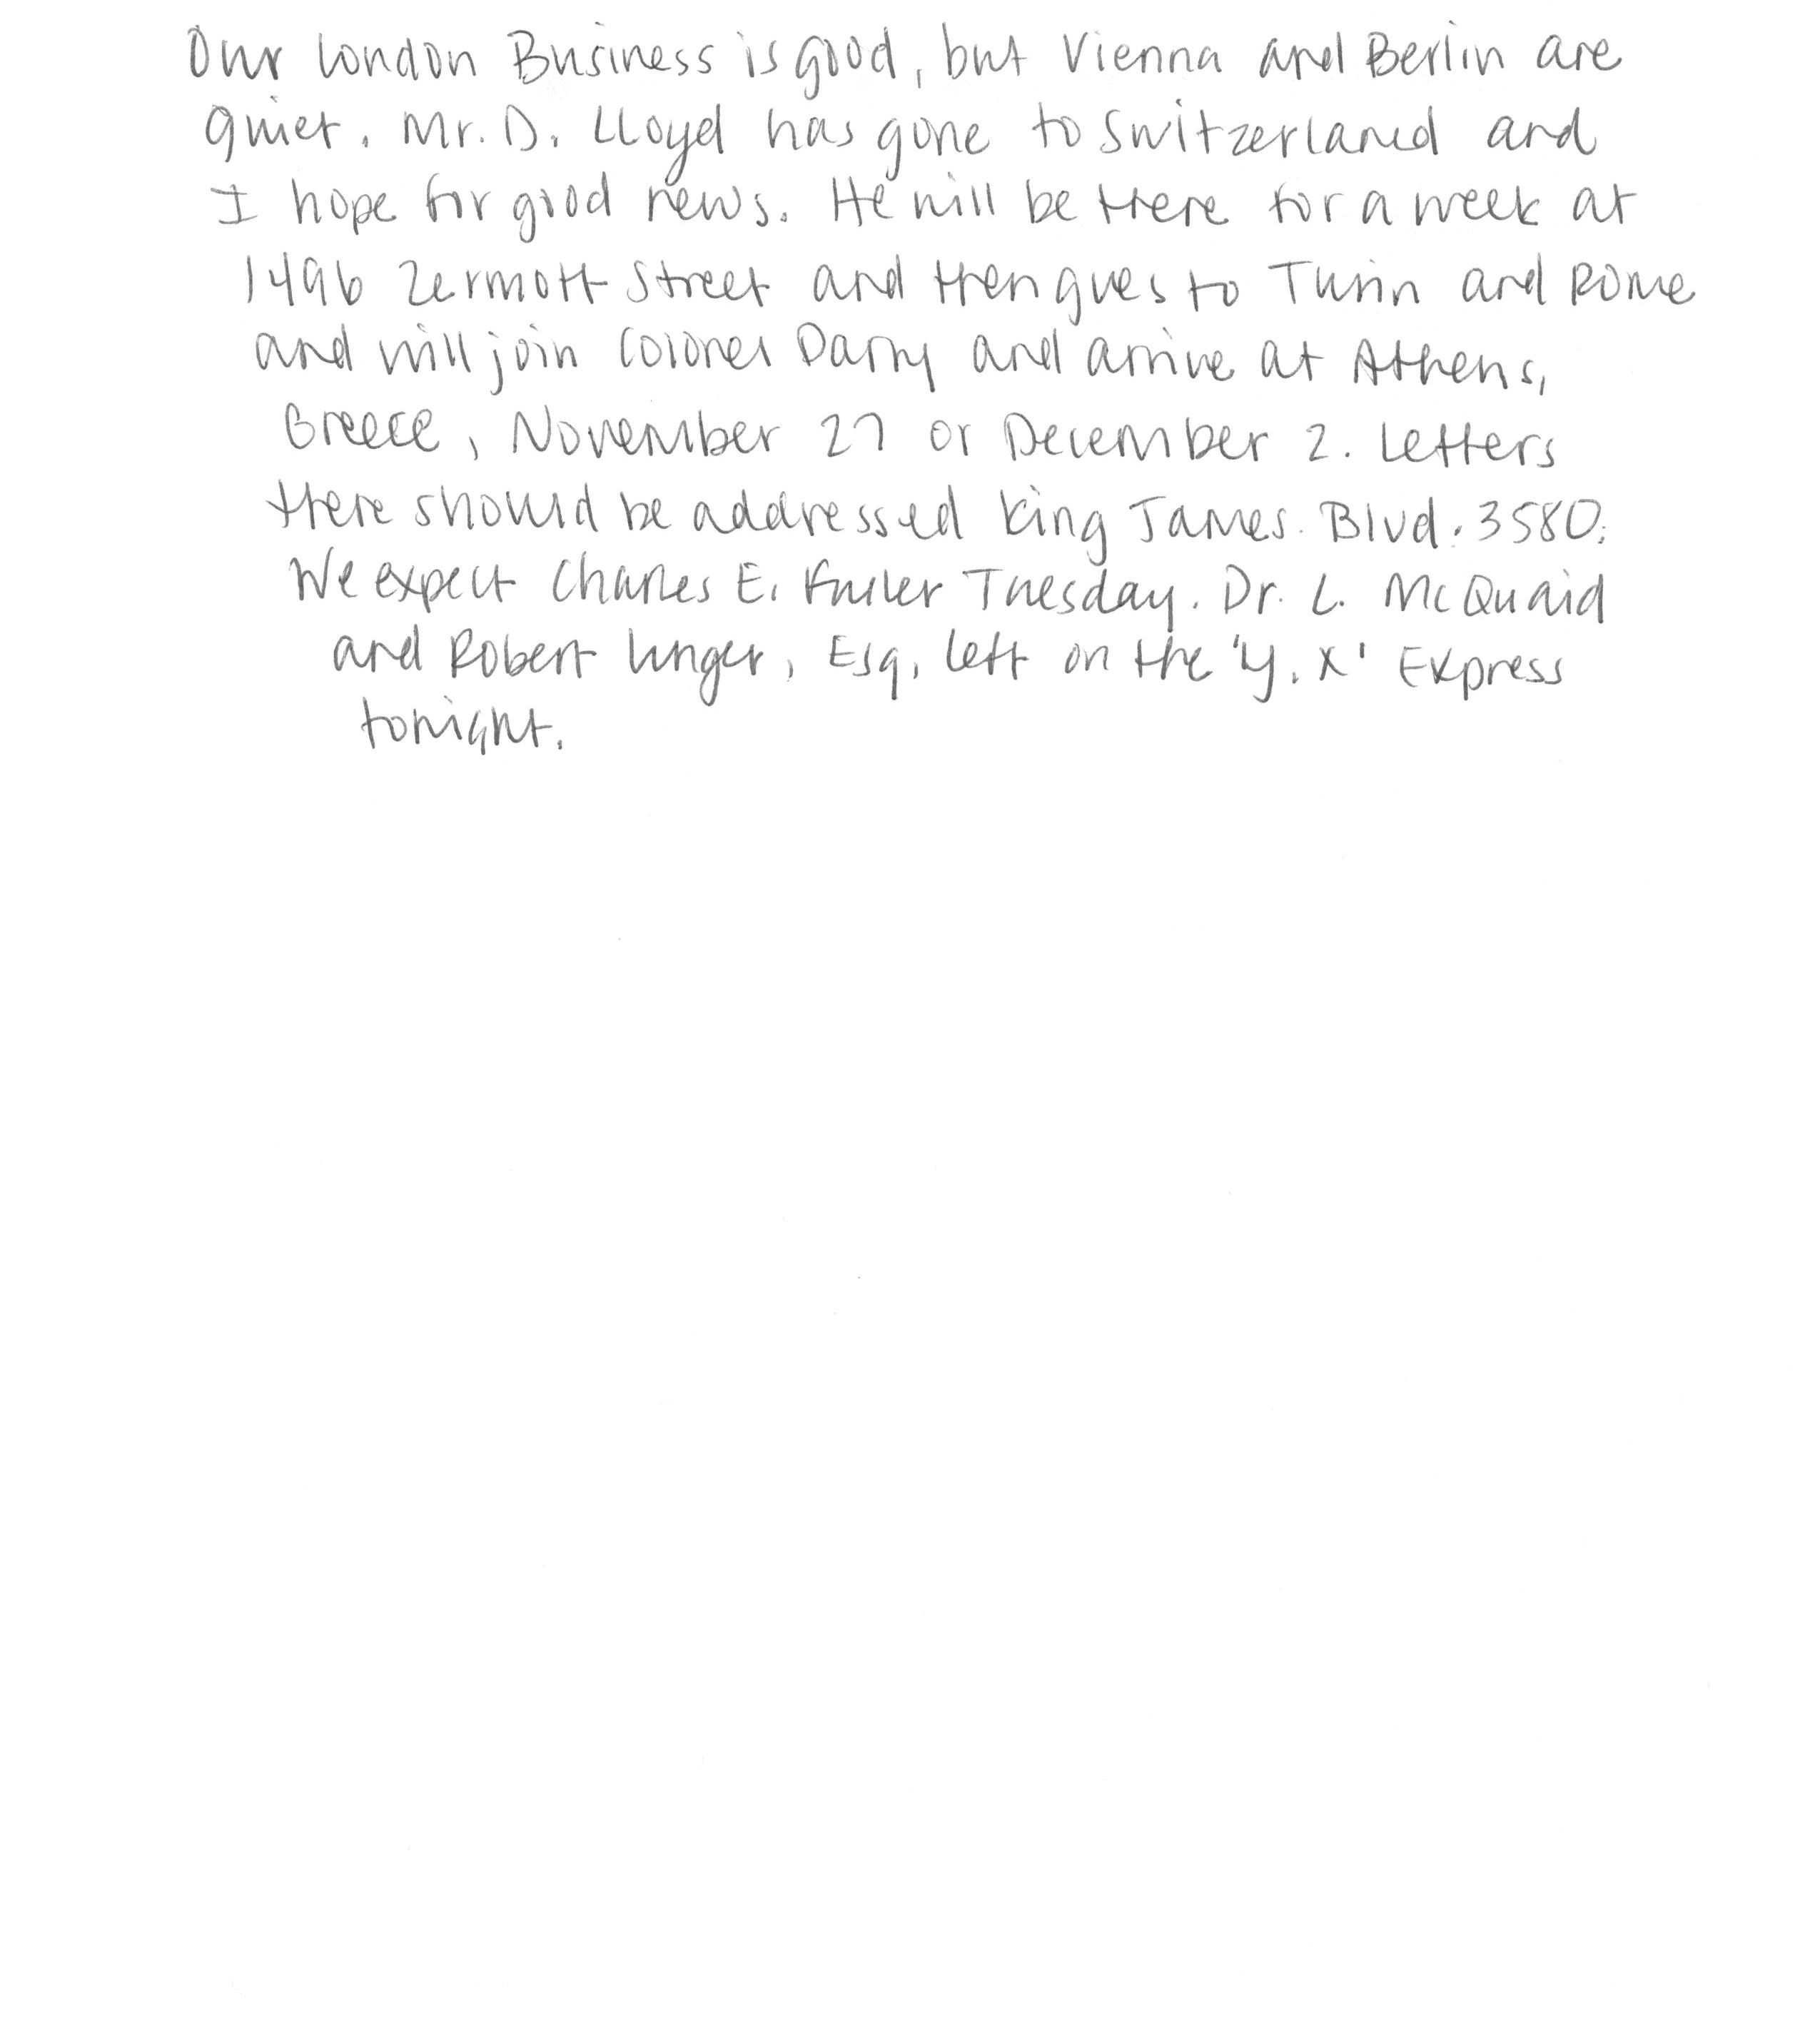 Our London Business is good, but Vienna and Berlin are
quiet. Mr. D. Lloyd has gone to Switzerland and
I hope for good news. He will be there for a week at
1496 Zermott Street and then goes to Turin and Rome
and will join Colonel Parry and arrive at Athens,
Greece, November 27 or December 2. Letters
there should be addressed King James Blvd. 3580.
We expect Charles E. Fuller Tuesday. Dr. L. McQuaid
and Robert Unger, Esq. left on the 'Y. X' Express
tonight.